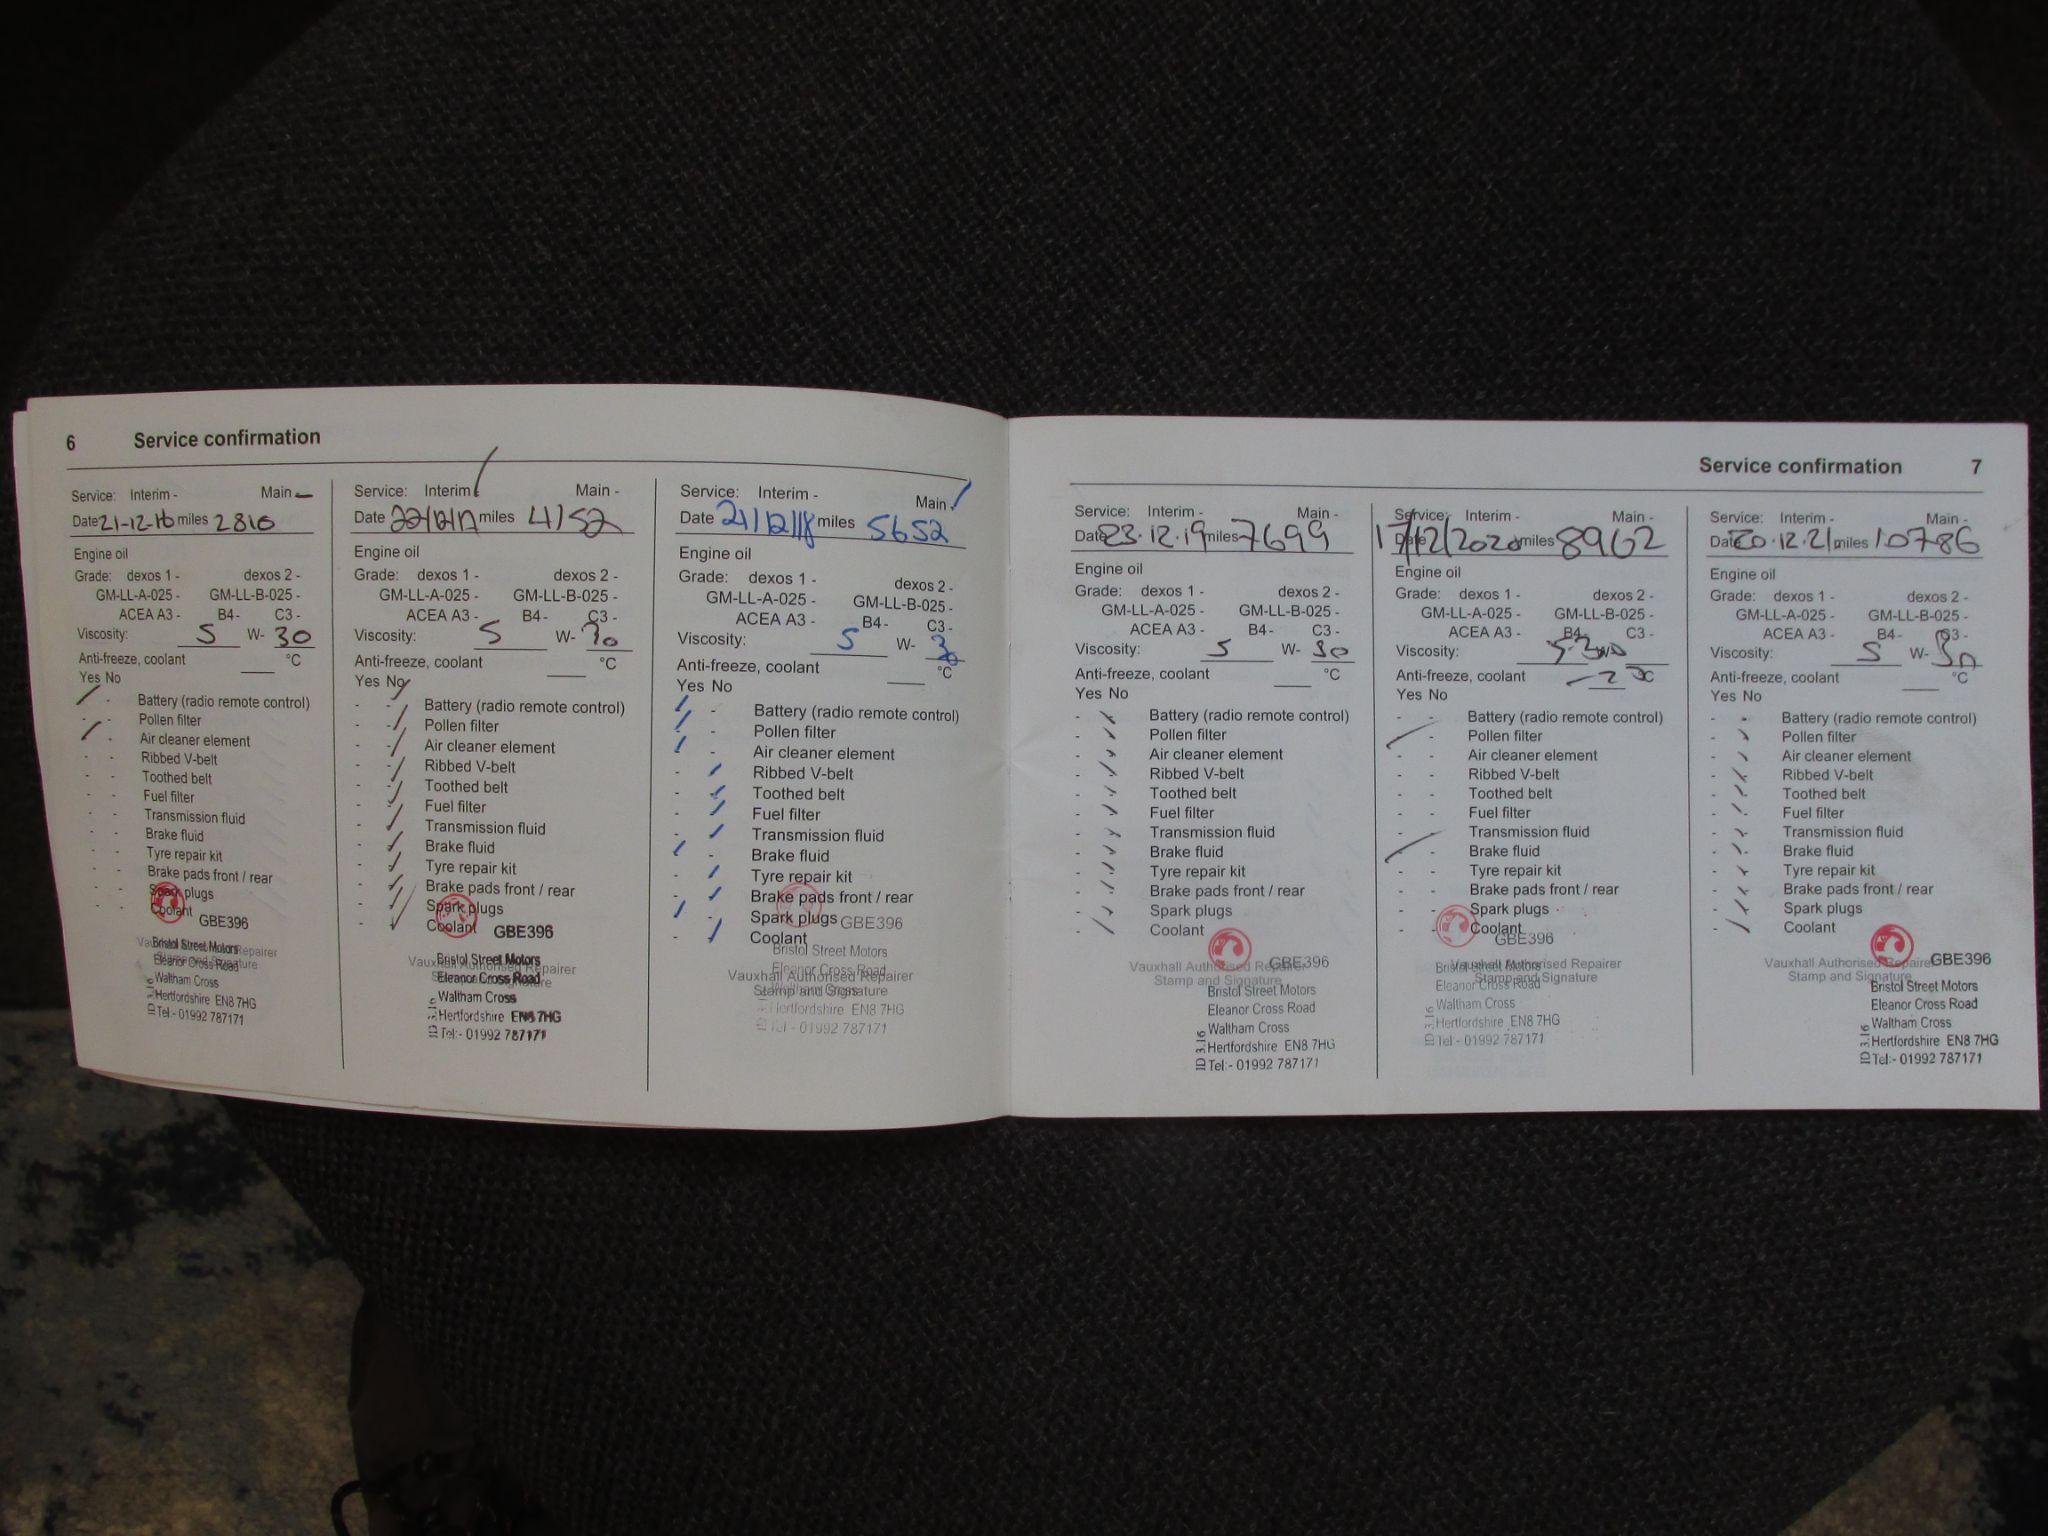 6 Service confirmation
Service: Interim - Main -
Date 21-12-16 miles 2810
Engine oil
Grade: dexos 1 - dexos 2 -
GM-LL-A-025 - GM-LL-B-025 -
ACEA A3 - B4 - C3 -
Viscosity: 5 W- 30
Anti-freeze, coolant °C
Yes No
- Battery (radio remote control)
- - Pollen filter
- Air cleaner element
- - Ribbed V-belt
- - Toothed belt
- - Fuel filter
- - Transmission fluid
- - Brake fluid
- - Tyre repair kit
- - Brake pads front / rear
- - Spark plugs
- - Coolant
GBE396
Vauxhall Authorised Repairer
Stamp and Signature
Bristol Street Motors
Eleanor Cross Road
Waltham Cross
Hertfordshire EN8 7HG
Tel:- 01992 787171
Service: Interim Main -
Date 22/12/17 miles 4152
Engine oil
Grade: dexos 1 - dexos 2 -
GM-LL-A-025 - GM-LL-B-025 -
ACEA A3 - B4- C3 -
Viscosity: 5 W- 30
Anti-freeze, coolant °C
Yes No
Battery (radio remote control)
Pollen filter
Air cleaner element
Ribbed V-belt
Toothed belt
Fuel filter
Transmission fluid
Brake fluid
Tyre repair kit
Brake pads front / rear
Spark plugs
Coolant
GBE396
Vauxhall Authorised Repairer
Stamp and Signature
Bristol Street Motors
Eleanor Cross Road
Waltham Cross
Hertfordshire EN8 7HG
Tel:- 01992 787171
Service: Interim - Main -
Date 21/12/18 miles 5652
Engine oil
Grade: dexos 1 - dexos 2 -
GM-LL-A-025 - GM-LL-B-025 -
ACEA A3 - B4- C3 -
Viscosity: 5 W- 30
Anti-freeze, coolant °C
Yes No
Battery (radio remote control)
Pollen filter
Air cleaner element
Ribbed V-belt
Toothed belt
Fuel filter
Transmission fluid
Brake fluid
Tyre repair kit
Brake pads front / rear
Spark plugs
Coolant
GBE396
Bristol Street Motors
Eleanor Cross Road
Vauxhall Authorised Repairer
Waltham Cross
Stamp and Signature
Hertfordshire EN8 7HG
Tel:- 01992 787171
Service confirmation 7
Service: Interim - Main -
Date 23.12.19 miles 7699
Engine oil
Grade: dexos 1 - dexos 2 -
GM-LL-A-025 - GM-LL-B-025 -
ACEA A3 - B4- C3 -
Viscosity: 5 W- 30
Anti-freeze, coolant °C
Yes No
Battery (radio remote control)
Pollen filter
Air cleaner element
Ribbed V-belt
Toothed belt
Fuel filter
Transmission fluid
Brake fluid
Tyre repair kit
Brake pads front / rear
Spark plugs
Coolant
GBE396
Vauxhall Authorised Repairer
Stamp and Signature
Bristol Street Motors
Eleanor Cross Road
Waltham Cross
Hertfordshire EN8 7HG
Tel:- 01992 787171
ID 3.16
Service: Interim - Main -
Date 17/12/2020 miles 8962
Engine oil
Grade: dexos 1 - dexos 2 -
GM-LL-A-025 - GM-LL-B-025 -
ACEA A3 - B4- C3 -
Viscosity:
Anti-freeze, coolant °C
Yes No
- - Battery (radio remote control)
- Pollen filter
- - Air cleaner element
- - Ribbed V-belt
- - Toothed belt
- - Fuel filter
- - Transmission fluid
- Brake fluid
- - Tyre repair kit
- - Brake pads front / rear
- - Spark plugs
- - Coolant
GBE396
Vauxhall Authorised Repairer
Stamp and Signature
Bristol Street Motors
Eleanor Cross Road
Waltham Cross
Hertfordshire EN8 7HG
Tel:- 01992 787171
ID 3.16
Service: Interim - Main -
Date 20.12.21 miles 10786
Engine oil
Grade: dexos 1 - dexos 2 -
GM-LL-A-025 - GM-LL-B-025 -
ACEA A3 - B4- C3 -
Viscosity: 5 W- 30
Anti-freeze, coolant °C
Yes No
Battery (radio remote control)
Pollen filter
Air cleaner element
Ribbed V-belt
Toothed belt
Fuel filter
Transmission fluid
Brake fluid
Tyre repair kit
Brake pads front / rear
Spark plugs
Coolant
GBE396
Vauxhall Authorised Repairer
Stamp and Signature
Bristol Street Motors
Eleanor Cross Road
Waltham Cross
Hertfordshire EN8 7HG
Tel:- 01992 787171
ID 3.16